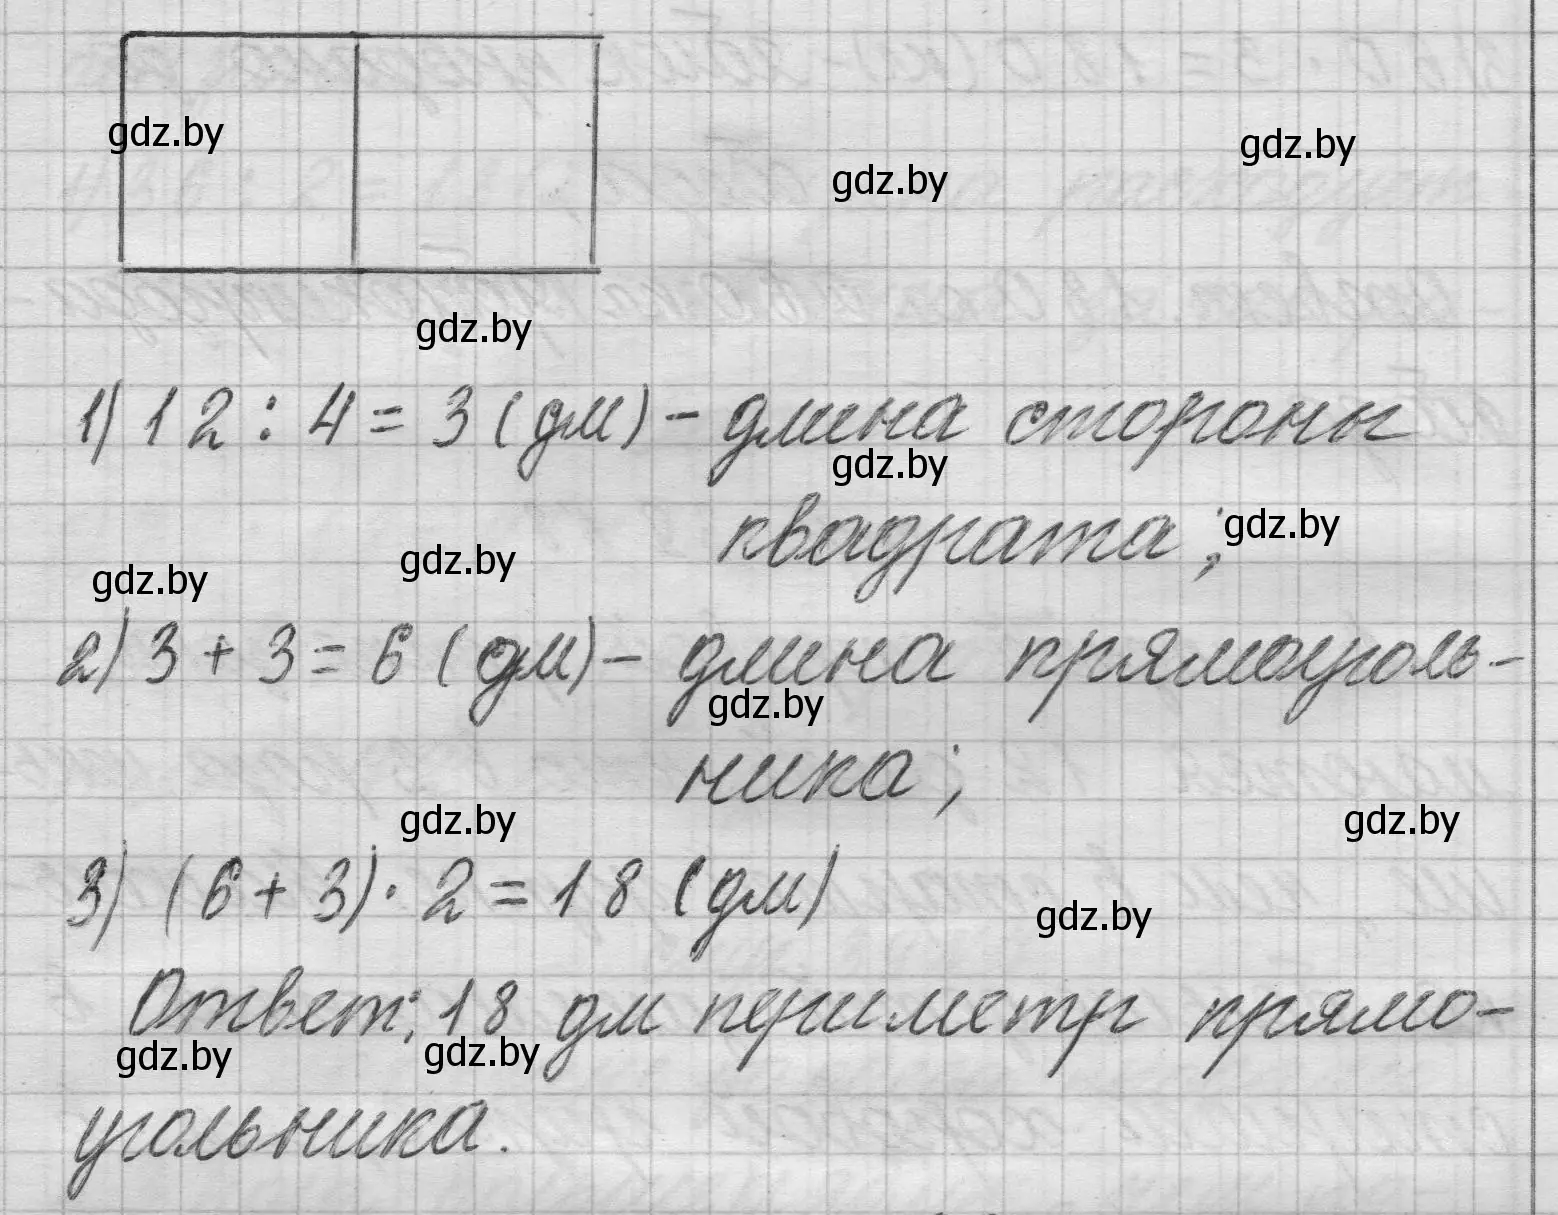 gdz.by
gdz.by
gdz.by
gdz.by
1) 12 : 4 = 3 (дм) – длина стороны
gdz.by
квадрата;
gdz.by
gdz.by
gdz.by
2) 3 + 3 = 6 (дм) – длина прямоуголь-
gdz.by
ника;
gdz.by
gdz.by
3) (6 + 3) · 2 = 18 (дм)
gdz.by
Ответ: 18 дм периметр прямо-
gdz.by
gdz.by
угольника.